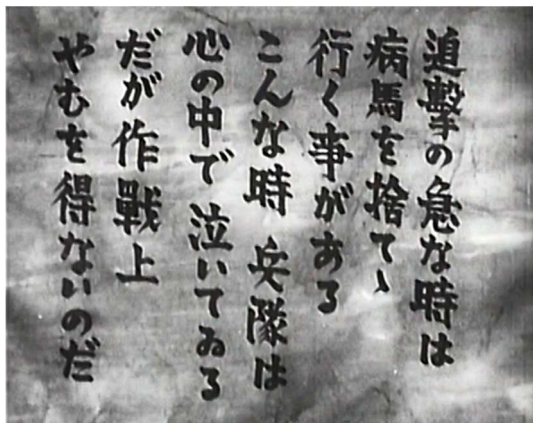 追撃の急な時は
病馬を捨てゝ
行く事がある
こんな時 兵隊は
心の中で 泣いてゐる
だが作戰上
やむを得ないのだ